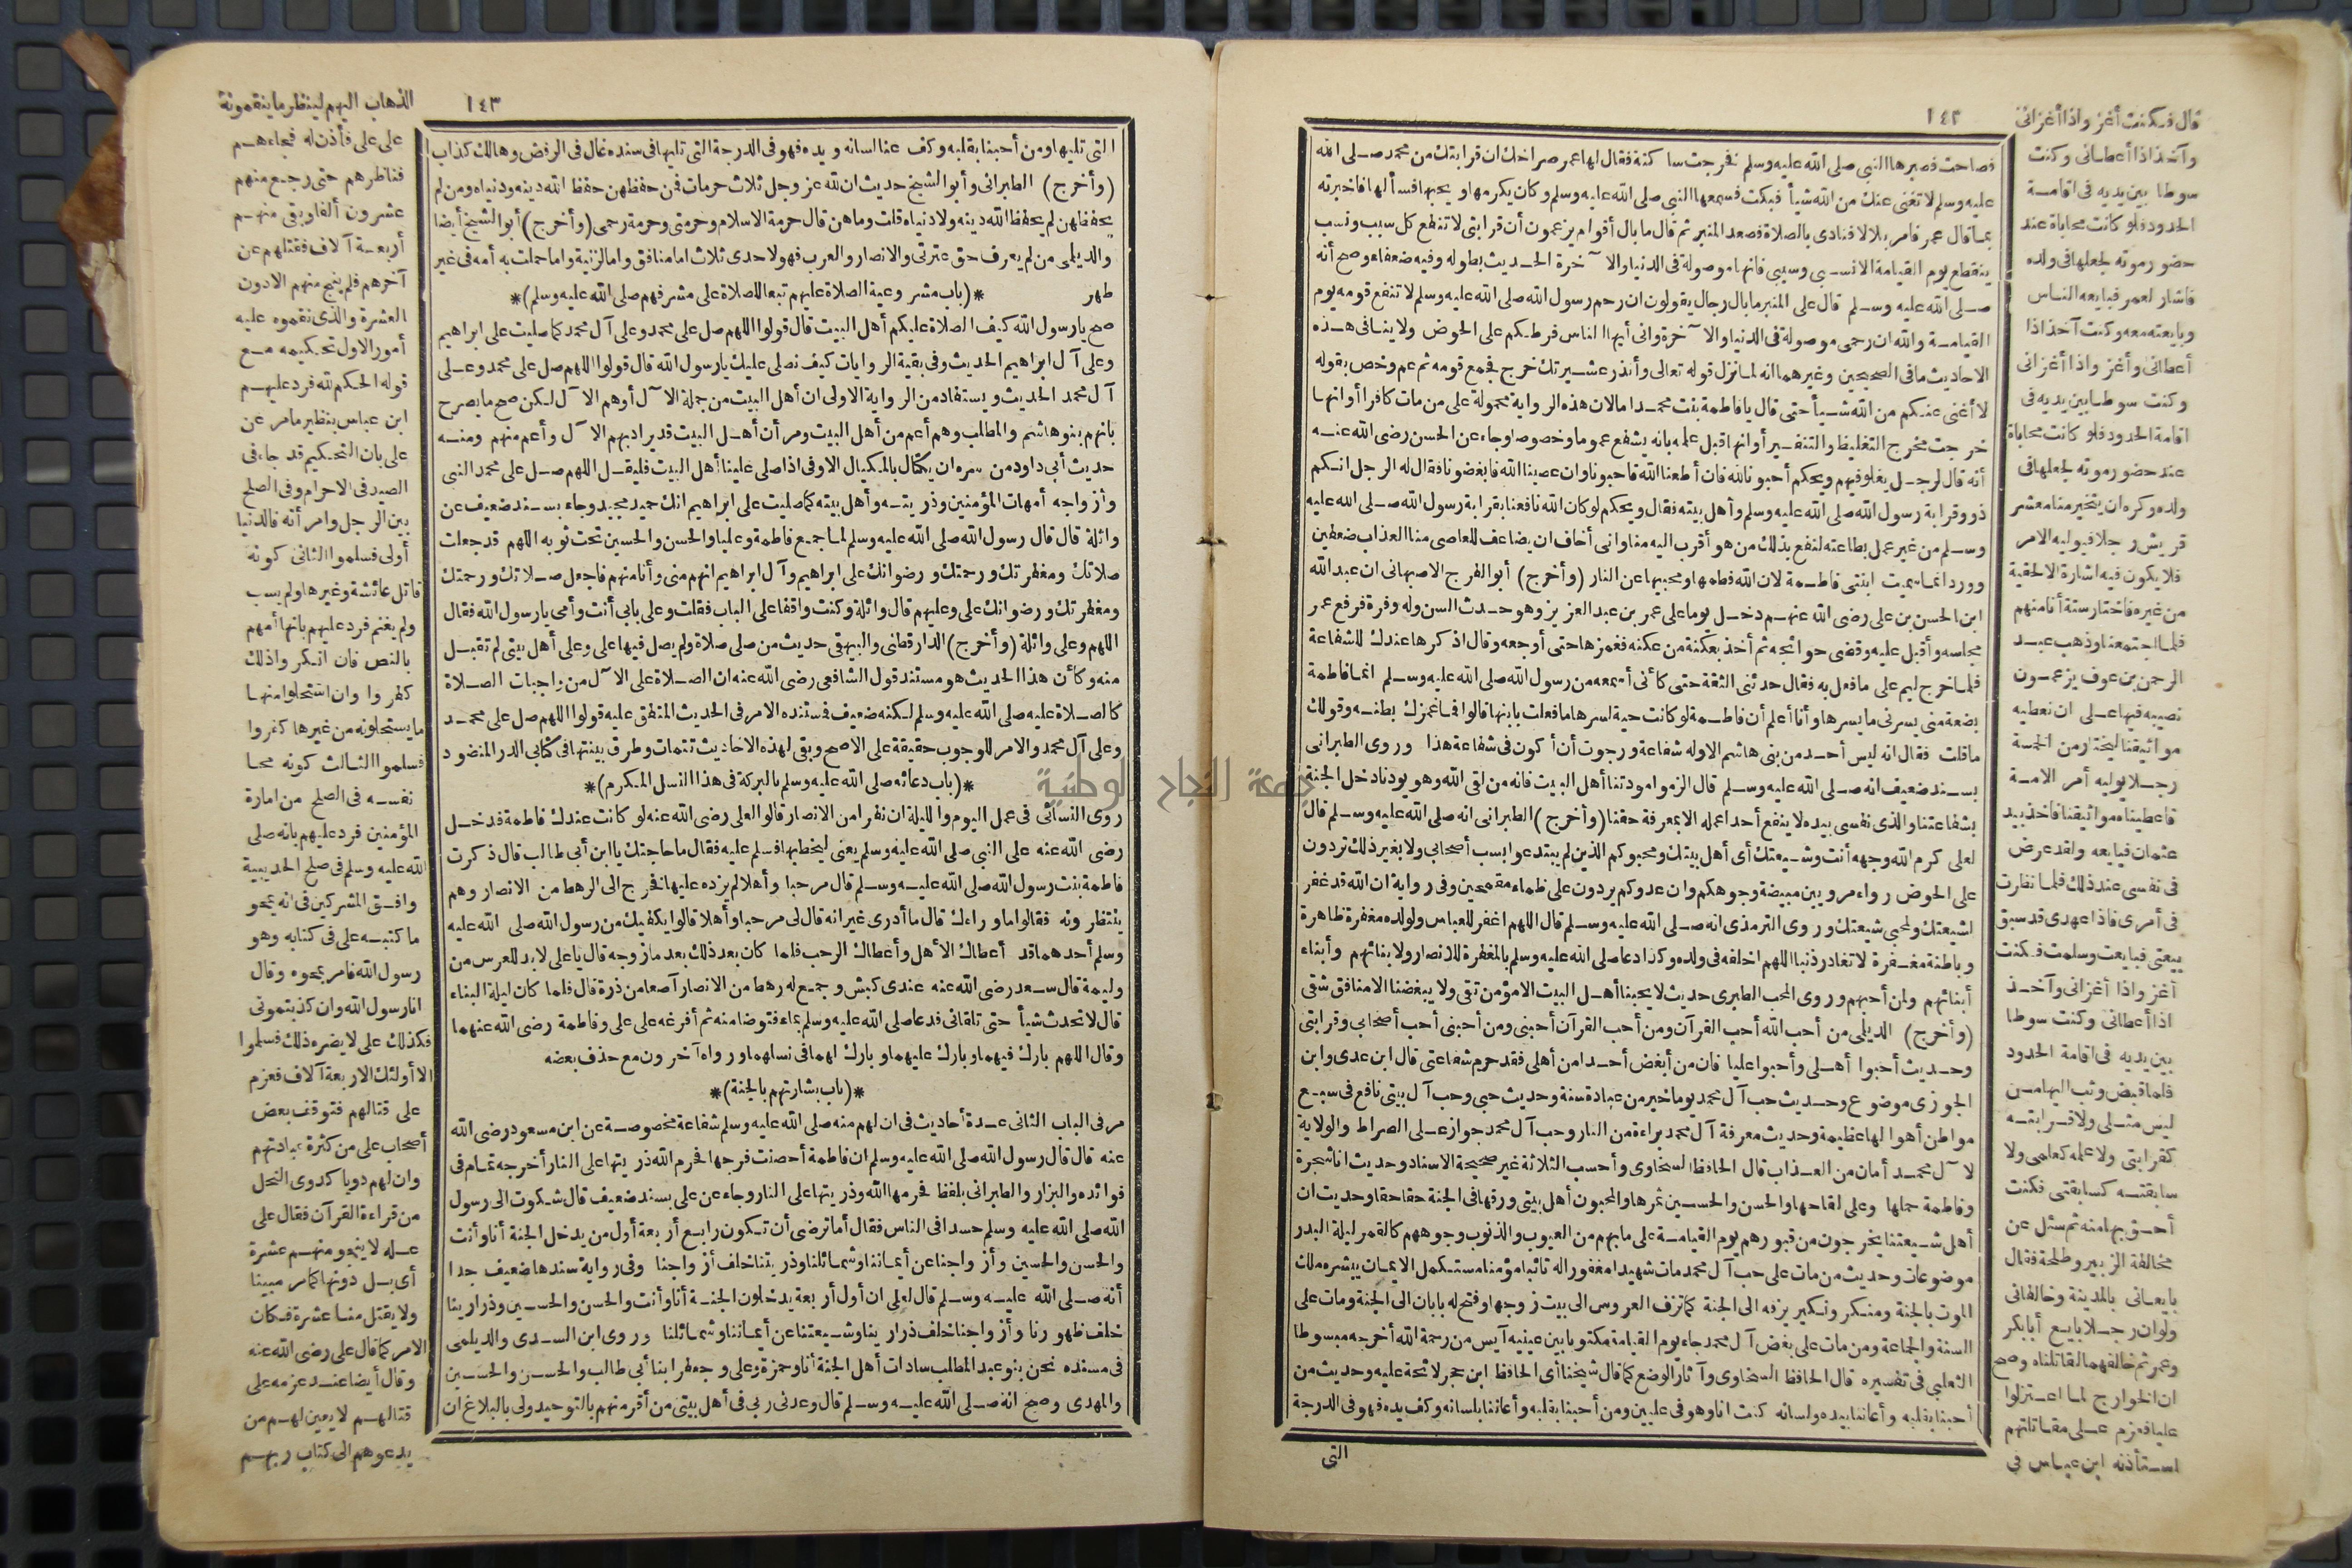 ١٤٢
فصاحت فصبرها النبي صلى الله عليه وسلم فخرجت ساكتة فقال لها عمر صراخك ان قرابتك من محمد صلى الله
عليه وسلم لا تغنى عنك من الله شيأ فبكت فسمعها النبي صلى الله عليه وسلم وكان يكرمها ويحبها فسألها فاخبرته
بما قال عمر فامر بلالا فنادى بالصلاة فصعد المنبر ثم قال ما بال أقوام يزعمون أن قرابتى لا تنفع كل سبب ونسب
ينقطع يوم القيامة الا نسبى وسببى فانها موصولة فى الدنيا والآخرة الحديث بطوله وفيه ضعفاء وصح أنه
صلى الله عليه وسلم قال على المنبر ما بال رجال يقولون ان رحم رسول الله صلى الله عليه وسلم لا تنفع قومه يوم
القيامة والله ان رحمى موصولة فى الدنيا والآخرة وانى أيها الناس فرطكم على الحوض ولا ينافى هذه
الاحاديث ما فى الصحيحين وغيرهما انه لما نزل قوله تعالى وأنذر عشيرتك خرج فجمع قومه ثم عم وخص بقوله
لا أغنى عنكم من الله شيأ حتى قال يا فاطمة بنت محمد اما لان هذه الرواية محمولة على من مات كافرا أو انها
خرجت مخرج التغليظ والتنفير أو انها قبل علمه بانه يشفع عموما وخصوصا وجاء عن الحسن رضى الله عنه
أنه قال لرجل يغلو فيهم ويحكم أحبونا لله فان أطعنا الله فاحبونا وان عصينا الله فابغضونا فقال له الرجل انكم
ذوو قرابة رسول الله صلى الله عليه وسلم وأهل بيته فقال ويحكم لو كان الله نافعنا بقرابة رسول الله صلى الله عليه
وسلم من غير عمل بطاعته لنفع بذلك من هو أقرب اليه منا وانى أخاف ان يضاعف للعاصى منا العذاب ضعفين
وورد انما سميت ابنتى فاطمة لان الله فطمها ومحبيها عن النار (وأخرج) أبو الفرج الاصبهانى ان عبد الله
ابن الحسن بن على رضى الله عنهم دخل يوما على عمر بن عبد العزيز وهو حدث السن وله وفرة فرفع عمر
مجلسه وأقبل عليه وقضى حوائجه ثم أخذ بعكنة من عكنه فغمزها حتى أوجعه وقال اذكرها عندك للشفاعة
فلما خرج ليم على ما فعل به فقال حدثنى الثقة حتى كأنى أسمعه من رسول الله صلى الله عليه وسلم انما فاطمة
بضعة منى يسرنى ما يسرها وأنا أعلم أن فاطمة لو كانت حية لسرها ما فعلت بابنها قالوا فما غمزك بطنه وقولك
ما قلت فقال انه ليس أحد من بنى هاشم الا وله شفاعة ورجوت أن أكون فى شفاعة هذا وروى الطبرانى
بسند ضعيف انه صلى الله عليه وسلم قال الزموا مودتنا أهل البيت فانه من لقى الله وهو يودنا دخل الجنة
بشفاعتنا والذى نفسى بيده لا ينفع أحدا عمله الا بمعرفة حقنا (وأخرج) الطبرانى انه صلى الله عليه وسلم قال
لعلى كرم الله وجهه أنت وشيعتك أى أهل بيتك ومحبوكم الذين لم يبتدعوا بسب أصحابى ولا بغير ذلك تردون
على الحوض رواء مرويين مبيضة وجوهكم وان عدوكم يردون على ظماء مقمحين وفى رواية ان الله قد غفر
لشيعتك ولمحبى شيعتك وروى الترمذى انه صلى الله عليه وسلم قال اللهم اغفر للعباس ولولده مغفرة ظاهرة
وباطنة مغفرة لا تغادر ذنبا اللهم اخلفه فى ولده وكذا دعا صلى الله عليه وسلم بالمغفرة للانصار ولابنائهم وأبناء
أبنائهم ولمن أحبهم وروى المحب الطبرى حديث لا يحبنا أهل البيت الا مؤمن تقى ولا يبغضنا الا منافق شقى
(وأخرج) الديلمى من أحب الله أحب القرآن ومن أحب القرآن أحبنى ومن أحبنى أحب أصحابى وقرابتى
وحديث أحبوا أهلى وأحبوا عليا فان من أبغض أحدا من أهلى فقد حرم شفاعتى قال ابن عدى وابن
الجوزى موضوع وحديث حب آل محمد يوما خير من عبادة سنة وحديث حبى وحب آل بيتى نافع فى سبع
مواطن أهوالها عظيمة وحديث معرفة آل محمد براءة من النار وحب آل محمد جواز على الصراط والولاية
لآل محمد أمان من العذاب قال الحافظ السخاوى وأحسب الثلاثة غير صحيحة الاسناد وحديث انا شجرة
وفاطمة حملها وعلى لقاحها والحسن والحسين ثمرها والمحبون أهل بيتى ورقها فى الجنة حقا حقا وحديث ان
أهل شيعتنا يخرجون من قبورهم يوم القيامة على ما بهم من العيوب والذنوب وجوههم كالقمر ليلة البدر
موضوعان وحديث من مات على حب آل محمد مات شهيدا مغفورا له تائبا مؤمنا مستكمل الايمان يبشره ملك
الموت بالجنة ومنكر ونكير يزفه الى الجنة كما تزف العروس الى بيت زوجها وفتح له بابان الى الجنة ومات على
السنة والجماعة ومن مات على بغض آل محمد جاء يوم القيامة مكتوبا بين عينيه آيس من رحمة الله أخرجه مبسوطا
الثعلبى فى تفسيره قال الحافظ السخاوى وآثار الوضع كما قال شيخنا أى الحافظ ابن حجر لائحة عليه وحديث من
أحبنا بقلبه وأعاننا بيده ولسانه كنت انا وهو فى عليين ومن أحبنا بقلبه وأعاننا بلسانه وكف يده فهو فى الدرجة
التى
قال فكنت أغز واذا أغزانى
وآخذ اذا أعطانى وكنت
سوطا بين يديه فى اقامة
الحدود فلو كانت محاباة عند
حضور موته لجعلها فى ولده
فاشار لعمر فبايعه الناس
وبايعته معه وكنت آخذ اذا
أعطانى وأغز واذا أغزانى
وكنت سوطا بين يديه فى
اقامة الحدود فلو كانت محاباة
عند حضور موته لجعلها فى
ولده وكره ان يتخير منا معشر
قريش رجلا فيوليه الامر
فلا يكون فيه اشارة الا لحقية
من غيره فاختار ستة أنا منهم
فلما اجتمعنا وذهب عبد
الرحمن بن عوف يزعمون
نصيبه فيها على ان نعطيه
مواثيقنا ليختار من الخمسة
رجلا يوليه أمر الامة
فاعطيناه مواثيقنا فاخذ بيد
عثمان فبايعه ولقد عرض
فى نفسى عند ذلك فلما نظرت
فى أمرى فاذا عهدى قد سبق
بيعتى فبايعت وسلمت فكنت
أغز واذا أغزانى وآخذ
اذا أعطانى وكنت سوطا
بين يديه فى اقامة الحدود
فلما قبض وثب اليها من
ليس مثلى ولا قرابته
كقرابتى ولا علمه كعلمى ولا
سابقته كسابقتى فكنت
أحق بها منه ثم سئل عن
مخالفة الزبير وطلحة فقال
بايعانى بالمدينة وخالفانى
ولو ان رجلا بايع أبا بكر
وعمر ثم خالفهما لقاتلناه وصح
ان الخوارج لما اعتزلوا
عليا فعزم على مقاتلتهم
استأذنه ابن عباس فى
١٤٣
التى تليها ومن أحبنا بقلبه وكف عنا لسانه ويده فهو فى الدرجة التى تليها فى سنده غال فى الرفض وهالك كذاب
(وأخرج) الطبرانى وأبو الشيخ حديث ان لله عز وجل ثلاث حرمات فمن حفظهن حفظ الله دينه ودنياه ومن لم
يحفظهن لم يحفظ الله دينه ولا دنياه قلت وما هن قال حرمة الاسلام وحرمتى وحرمة رحمى (وأخرج) أبو الشيخ أيضا
والديلمى من لم يعرف حق عترتى والانصار والعرب فهو لاحدى ثلاث اما منافق واما لزنية واما حملت به أمه فى غير
طهر *(باب مشروعية الصلاة عليهم تبعا للصلاة على مشرفهم صلى الله عليه وسلم)*
صح يا رسول الله كيف الصلاة عليكم أهل البيت قال قولوا اللهم صل على محمد وعلى آل محمد كما صليت على ابراهيم
وعلى آل ابراهيم الحديث وفى بقية الروايات كيف نصلى عليك يا رسول الله قال قولوا اللهم صل على محمد وعلى
آل محمد الحديث ويستفاد من الرواية الاولى ان أهل البيت من جملة الآل أو هم الآل لكن صح ما يصرح
بانهم بنو هاشم والمطلب وهم أعم من أهل البيت ومر أن أهل البيت قد يراد بهم الآل وأعم منهم ومنه
حديث أبى داود من سره ان يكتال بالمكيال الاوفى اذا صلى علينا أهل البيت فليقل اللهم صل على محمد النبى
وأزواجه أمهات المؤمنين وذريته وأهل بيته كما صليت على ابراهيم انك حميد مجيد وجاء بسند ضعيف عن
واثلة قال قال رسول الله صلى الله عليه وسلم لما جمع فاطمة وعليا والحسن والحسين تحت ثوبه اللهم قد جعلت
صلاتك ومغفرتك ورحمتك ورضوانك على ابراهيم وآل ابراهيم انهم منى وأنا منهم فاجعل صلاتك ورحمتك
ومغفرتك ورضوانك على وعليهم قال واثلة وكنت واقفا على الباب فقلت وعلى بابى أنت وأمى يا رسول الله فقال
اللهم وعلى واثلة (وأخرج) الدارقطنى والبيهقى حديث من صلى صلاة ولم يصل فيها على وعلى أهل بيتى لم تقبل
منه وكأن هذا الحديث هو مستند قول الشافعى رضى الله عنه ان الصلاة على الآل من واجبات الصلاة
كالصلاة عليه صلى الله عليه وسلم لكنه ضعيف فمستنده الامر فى الحديث المتفق عليه قولوا اللهم صل على محمد
وعلى آل محمد والامر للوجوب حقيقة على الاصح وبقى لهذه الاحاديث تتمات وطرق بينتها فى كتابى الدر المنضود
*(باب دعائه صلى الله عليه وسلم بالبركة فى هذا النسل المكرم)*
روى النسائى فى عمل اليوم والليلة ان نفرا من الانصار قالوا لعلى رضى الله عنه لو كانت عندك فاطمة فدخل
رضى الله عنه على النبى صلى الله عليه وسلم يعنى ليخطبها فسلم عليه فقال ما حاجتك يا ابن أبى طالب قال ذكرت
فاطمة بنت رسول الله صلى الله عليه وسلم قال مرحبا وأهلا لم يزده عليها فخرج الى الرهط من الانصار وهم
ينتظرونه فقالوا ما وراءك قال ما أدرى غير انه قال لى مرحبا وأهلا قالوا يكفيك من رسول الله صلى الله عليه
وسلم أحدهما قد أعطاك الأهل وأعطاك الرحب فلما كان بعد ذلك بعد ما زوجه قال يا على لا بد للعرس من
وليمة قال سعد رضى الله عنه عندى كبش وجمع له رهط من الانصار آصعا من ذرة قال فلما كان ليلة البناء
قال لا تحدث شيأ حتى تلقانى فدعا صلى الله عليه وسلم بماء فتوضا منه ثم أفرغه على على وفاطمة رضى الله عنهما
وقال اللهم بارك فيهما وبارك عليهما وبارك لهما فى نسلهما ورواه آخرون مع حذف بعضه
*(باب بشارتهم بالجنة)*
مر فى الباب الثانى عدة أحاديث فى ان لهم منه صلى الله عليه وسلم شفاعة مخصوصة عن ابن مسعود رضى الله
عنه قال قال رسول الله صلى الله عليه وسلم ان فاطمة أحصنت فرجها فحرم الله ذريتها على النار أخرجه تمام فى
فوائده والبزار والطبرانى بلفظ فحرمها الله وذريتها على النار وجاء عن على بسند ضعيف قال شكوت الى رسول
الله صلى الله عليه وسلم حسدا فى الناس فقال أما ترضى أن تكون رابع أربعة أول من يدخل الجنة أنا وأنت
والحسن والحسين وأزواجنا عن أيماننا وشمائلنا وذريتنا خلف أزواجنا وفى رواية سندها ضعيف جدا
أنه صلى الله عليه وسلم قال لعلى ان أول أربعة يدخلون الجنة أنا وأنت والحسن والحسين وذرارينا
خلف ظهورنا وأزواجنا خلف ذرارينا وشيعتنا عن أيماننا وشمائلنا وروى ابن السدى والديلمى
فى مسنده نحن بنو عبد المطلب سادات أهل الجنة أنا وحمزة وعلى وجعفر ابنا أبى طالب والحسن والحسين
والمهدى وصح انه صلى الله عليه وسلم قال وعدنى ربى فى أهل بيتى من أقر منهم بالتوحيد ولى بالبلاغ ان
الذهاب اليهم لينظر ما ينقمونه
على على فأذن له فجاءهم
فناظرهم حتى رجع منهم
عشرون ألفا وبقى منهم
أربعة آلاف فقتلهم عن
آخرهم فلم ينج منهم الا دون
العشرة والذى نقموه عليه
أمور الاول تحكيمه مع
قوله الحكم لله فرد عليهم
ابن عباس بنظير ما مر عن
على بان التحكيم قد جاء فى
الصيد فى الاحرام وفى الصلح
بين الرجل وامرأته فالدنيا
أولى فسلموا الثانى كونه
قاتل عائشة وغيرها ولم يسب
ولم يغنم فرد عليهم بانها أمهم
بالنص فان انكروا ذلك
كفروا وان استحلوا منها
ما يستحلونه من غيرها كفروا
فسلموا الثالث كونه محا
نفسه فى الصلح من امارة
المؤمنين فرد عليهم بانه صلى
الله عليه وسلم فى صلح الحديبية
وافق المشركين فى انه يمحو
ما كتبه على فى كتابه وهو
رسول الله فامر بمحوه وقال
انا رسول الله وان كذبتمونى
فكذلك على لا يضره ذلك فسلموا
الا أولئك الاربعة آلاف فعزم
على قتالهم فتوقف بعض
أصحاب على من كثرة عبادتهم
وان لهم دويا كدوى النحل
من قراءة القرآن فقال على
عله لا ينجو منهم عشرة
أى بل دونها كما مر مبينا
ولا يقتل منا عشرة فكان
الامر كما قال على رضى الله عنه
وقال أيضا عند عزمه على
قتالهم لا يعين لهم من
يدعوهم الى كتاب ربهم
جامعة النجاح الوطنية